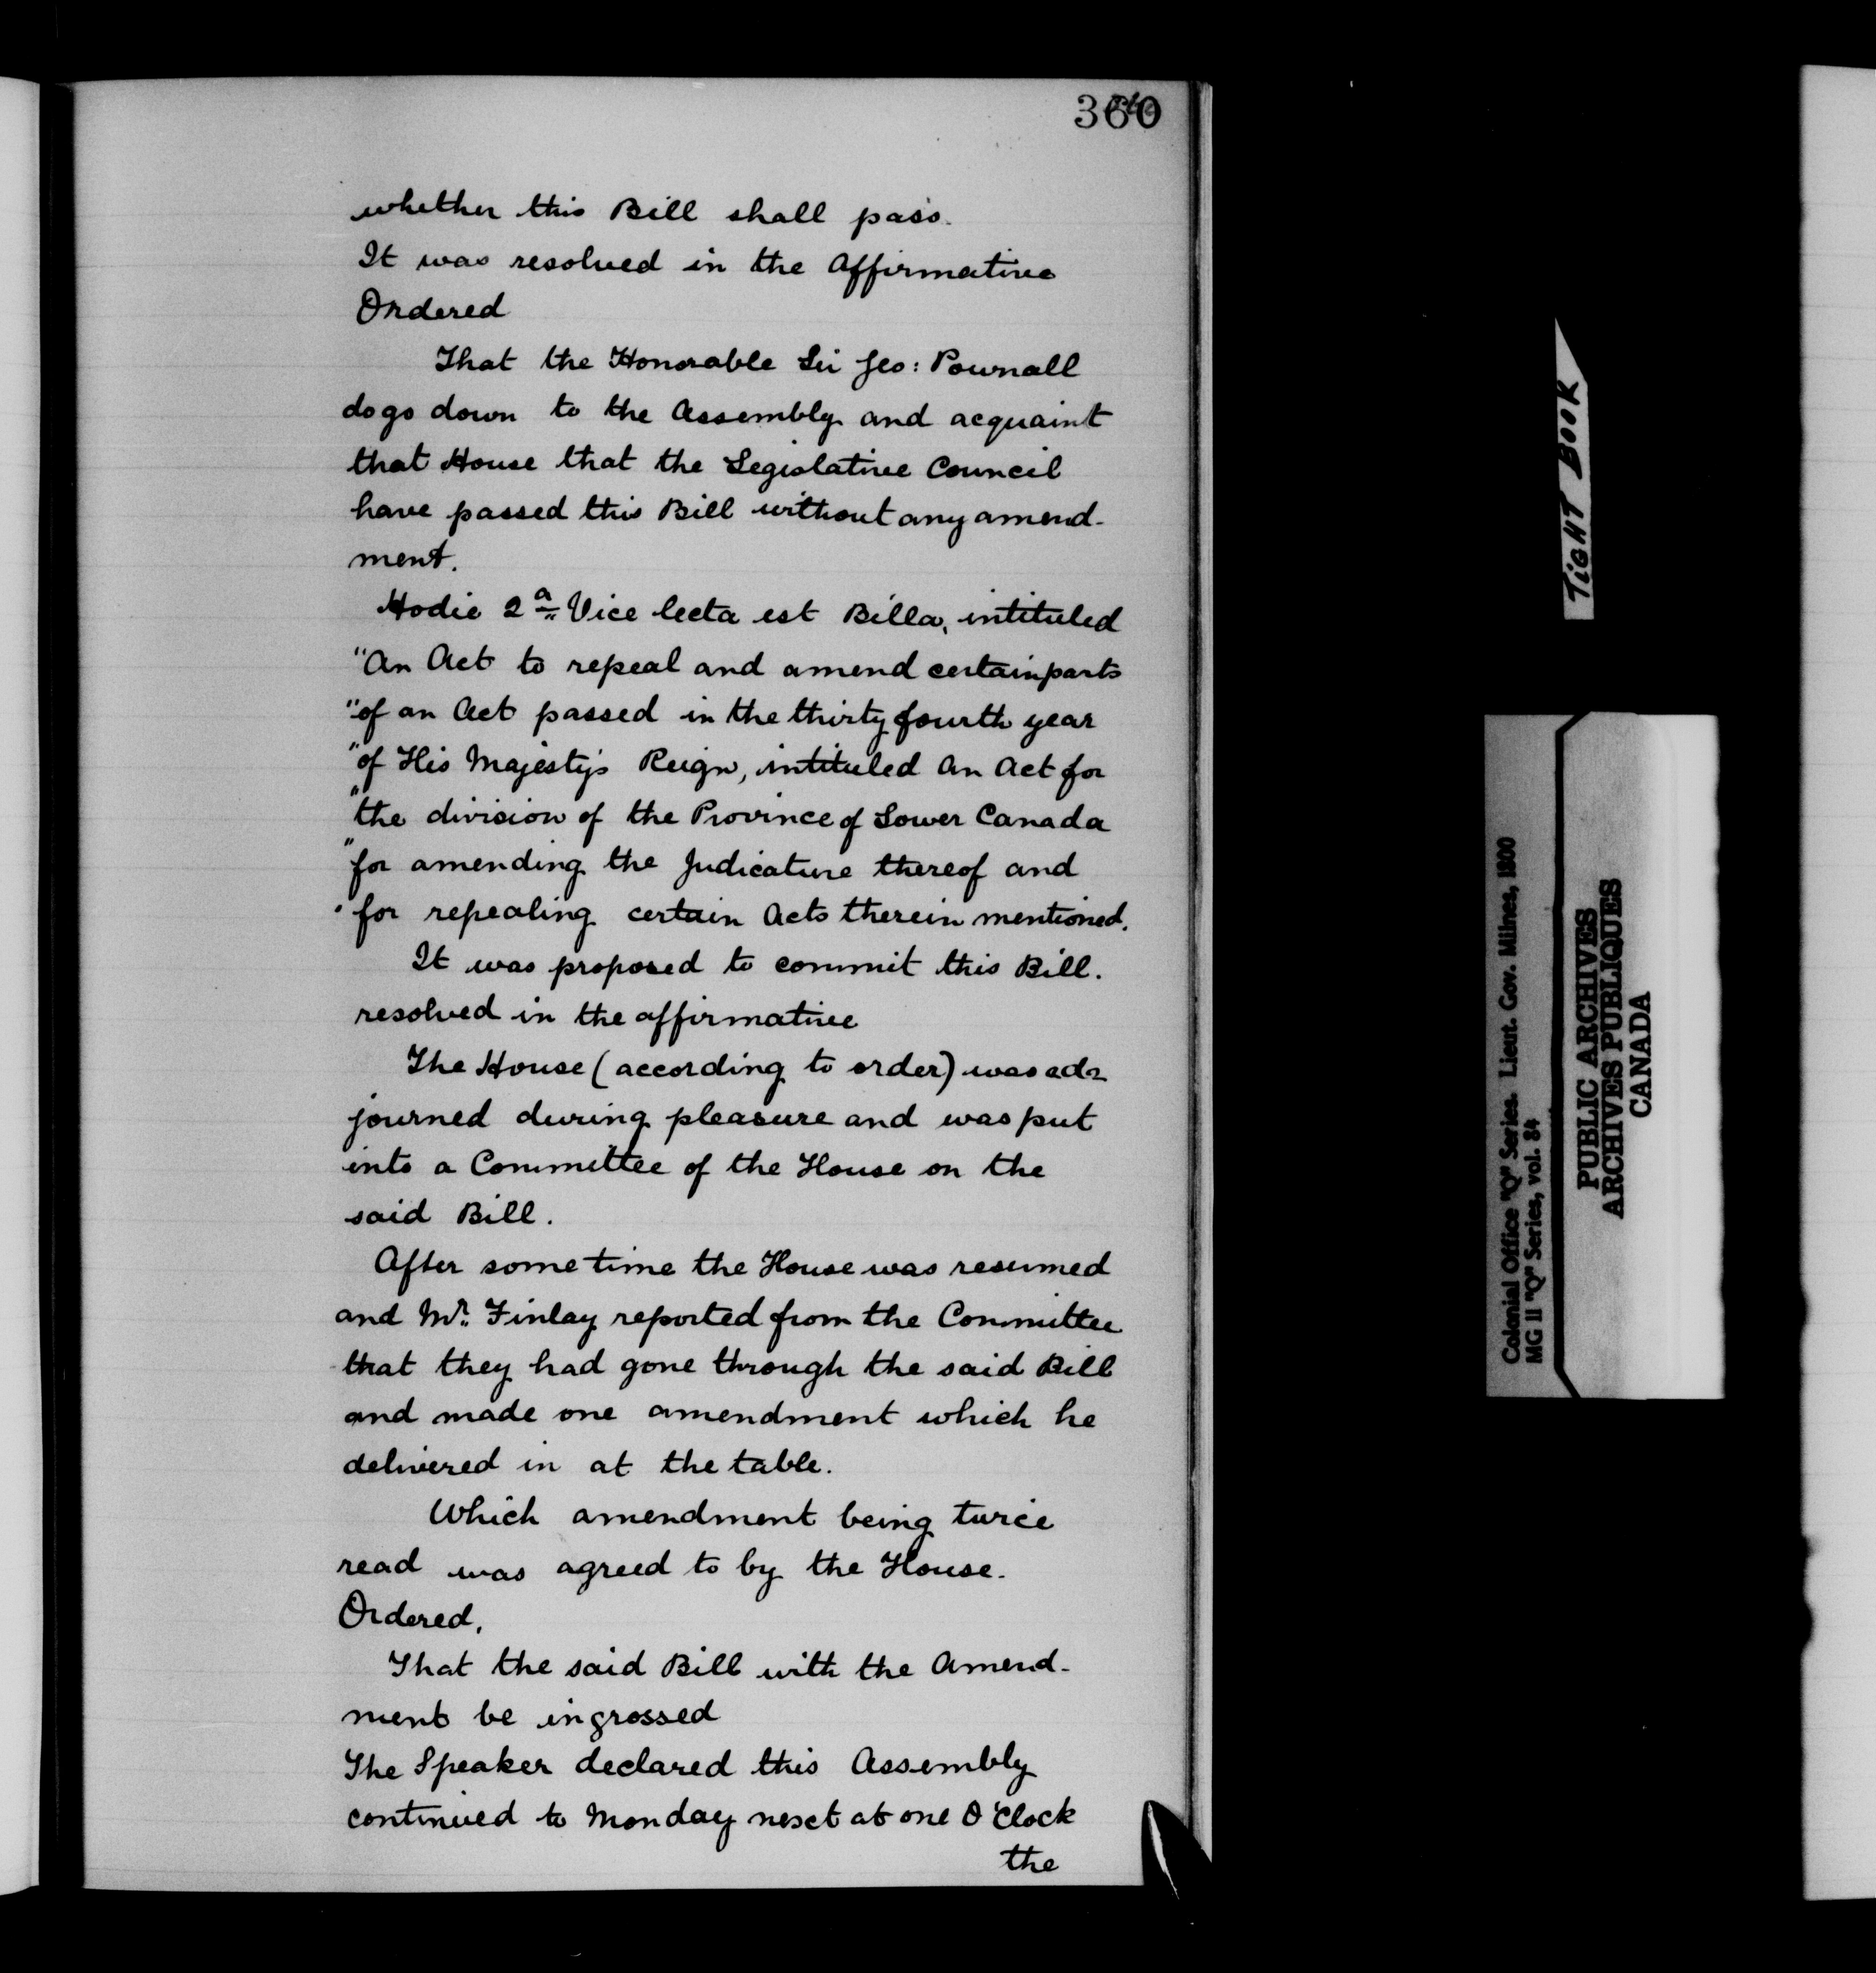 360
whether this Bill shall pass.
It was resolved in the Affirmative
Ordered
That the Honorable Sir Geo: Pownall
do go down to the Assembly and acquaint
that House that the Legislative Council
have passed this Bill without any amend-
ment.
Hodie 2a Vice lecta est Billa, intituled
"An Act to repeal and amend certain parts
"of an Act passed in the thirty fourth year
"of His Majesty's Reign, intituled An Act for
"the division of the Province of Lower Canada
"for amending the Judicature thereof and
"for repealing certain Acts therein mentioned.
It was proposed to commit this Bill.
resolved in the affirmative
The House (according to order) was ad-
journed during pleasure and was put
into a Committee of the House on the
said Bill.
After some time the House was resumed
and Mr. Finlay reported from the Committee
that they had gone through the said Bill
and made one amendment which he
delivered in at the table.
Which amendment being twice
read was agreed to by the House.
Ordered,
That the said Bill with the Amend-
ment be ingrossed
The Speaker declared this Assembly
continued to Monday next at one O'Clock
the
TIGHT BOOK
Colonial Office "Q" Series. Lieut. Gov. Milnes, 1800
MG 11 "Q" Series, vol. 84
PUBLIC ARCHIVES
ARCHIVES PUBLIQUES
CANADA